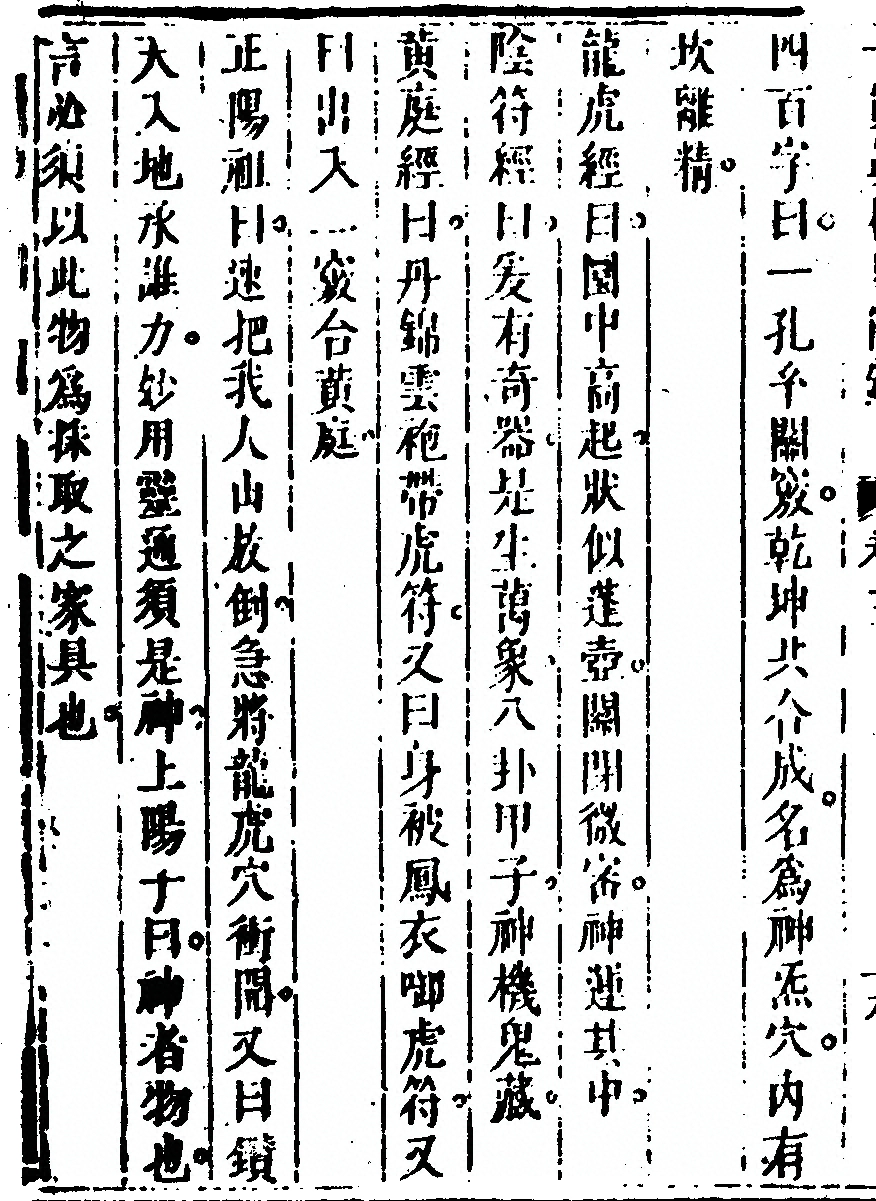 四百字曰一孔玄關竅乾坤共合成名爲神炁穴内有
坎離精
龍虎經曰圓中高起狀似蓬壺關閉微密神運其中
陰符經曰爰有奇器是生萬象八卦甲子神機鬼藏
黄庭經曰丹錦雲袍帶虎符又曰身被鳳衣啣虎符又
曰出入二竅合黄庭
正陽祖曰速把我人山放倒急將龍虎穴衝開又曰鑽
天入地承誰力妙用靈通須是神上陽子曰神者物也
言必須以此物爲採取之家具也